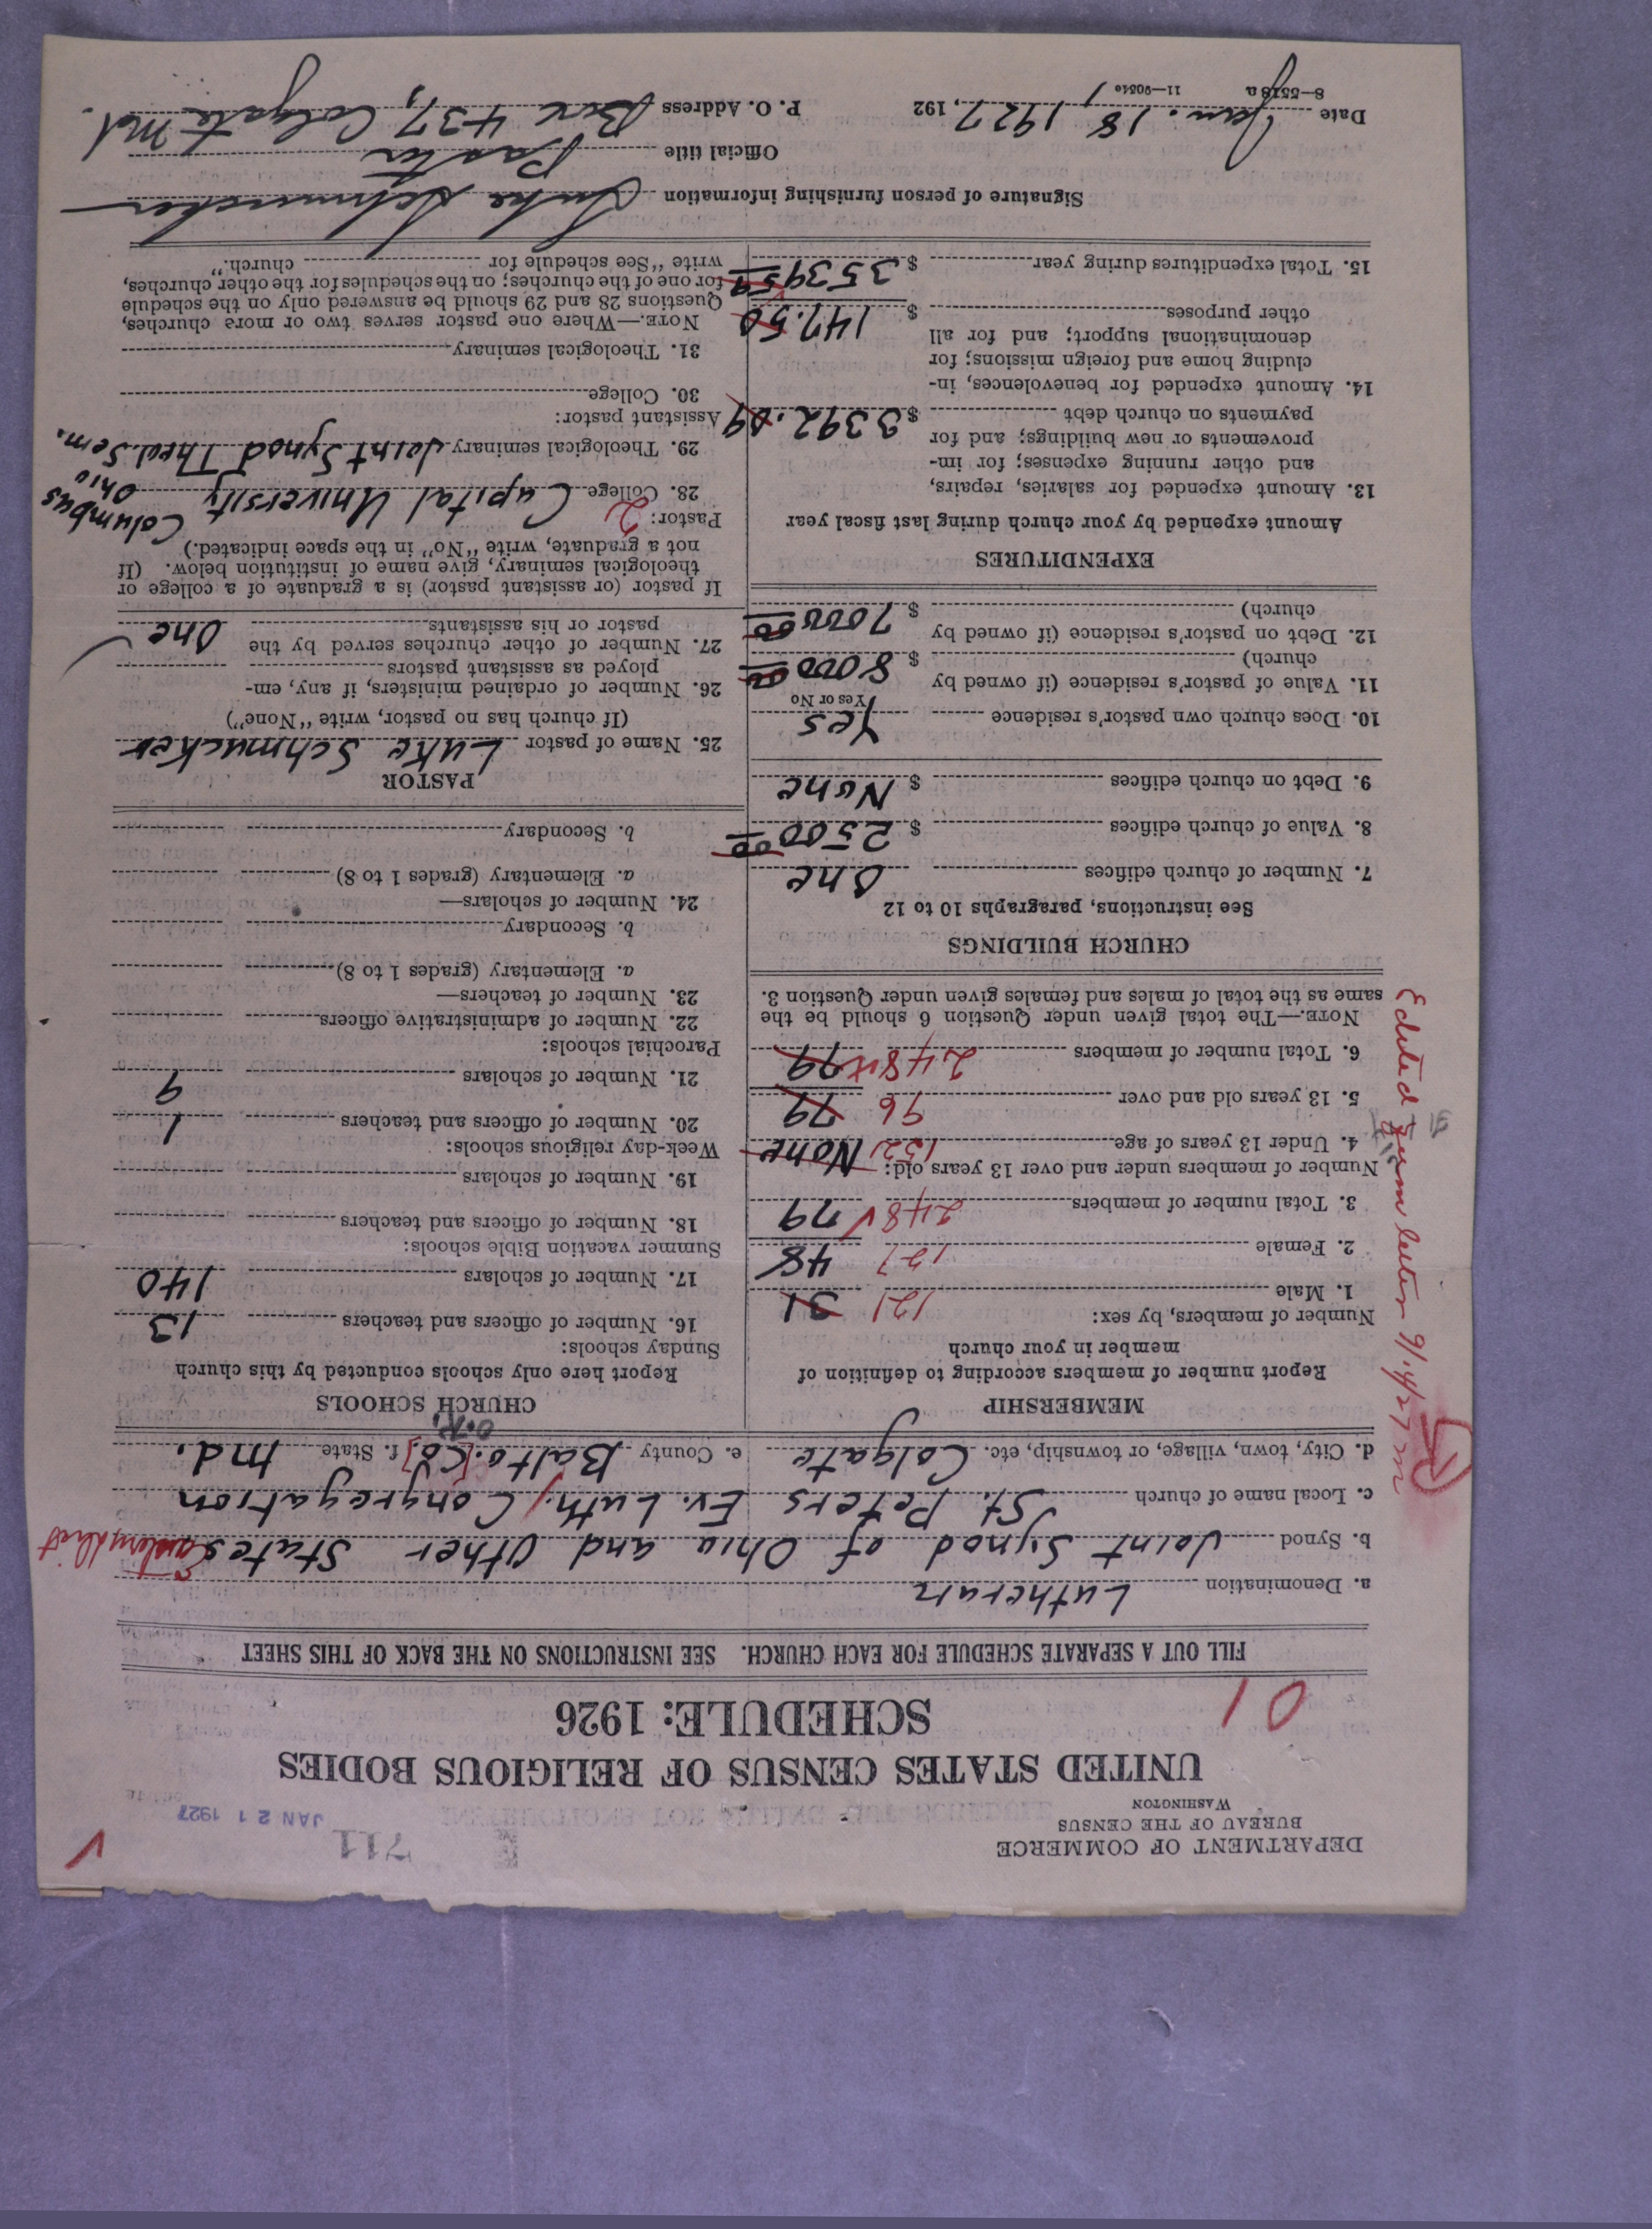 DEPARTMENT OF COMMERCE
BUREAU OF THE CENSUS
WASHINGTON
711
JAN 21 1927
UNITED STATES CENSUS OF RELIGIOUS BODIES
SCHEDULE: 1926
01
FILL OUT A SEPARATE SCHEDULE FOR EACH CHURCH. SEE INSTRUCTIONS ON THE BACK OF THIS SHEET
a. Denomination Lutheran
b. Synod Joint Synod of Ohio and Other States Eastern Dist
c. Local name of church St. Peters Ev. Luth. Congregation
d. City, town, village, or township, etc. Colgate e. County Balto. [Co.] O.K. f. State Md.
MEMBERSHIP
Report number of members according to definition of
member in your church
Number of members, by sex:
1. Male 121 31
2. Female 127 48
3. Total number of members 248 79
Number of members under and over 13 years old:
4. Under 13 years of age 152 None
5. 13 years old and over 96 79
6. Total number of members 248 79
NOTE.—The total given under Question 6 should be the
same as the total of males and females given under Question 3.
Edited from letter 9/14/27
CHURCH BUILDINGS
See instructions, paragraphs 10 to 12
7. Number of church edifices One
8. Value of church edifices $ 2500 00
9. Debt on church edifices $ None
10. Does church own pastor's residence Yes
Yes or No
11. Value of pastor's residence (if owned by
church) $ 8000 00
12. Debt on pastor's residence (if owned by
church) $ 7000 00
EXPENDITURES
Amount expended by your church during last fiscal year
13. Amount expended for salaries, repairs,
and other running expenses; for im-
provements or new buildings; and for
payments on church debt $ 3392.09
14. Amount expended for benevolences, in-
cluding home and foreign missions; for
denominational support; and for all
other purposes $ 147.50
15. Total expenditures during year $ 3539 59
CHURCH SCHOOLS
Report here only schools conducted by this church
Sunday schools:
16. Number of officers and teachers 13
17. Number of scholars 140
Summer vacation Bible schools:
18. Number of officers and teachers
19. Number of scholars
Week-day religious schools:
20. Number of officers and teachers 1
21. Number of scholars 9
Parochial schools:
22. Number of administrative officers
23. Number of teachers—
a. Elementary (grades 1 to 8)
b. Secondary
24. Number of scholars—
a. Elementary (grades 1 to 8)
b. Secondary
PASTOR
25. Name of pastor Luke Schmucker
(If church has no pastor, write "None")
26. Number of ordained ministers, if any, em-
ployed as assistant pastors
27. Number of other churches served by the
pastor or his assistants One
If pastor (or assistant pastor) is a graduate of a college or
theological seminary, give name of institution below. (If
not a graduate, write "No" in the space indicated.)
Pastor: 2
28. College Capital University Columbus Ohio
29. Theological seminary Joint Synod Theol. Sem.
Assistant pastor:
30. College
31. Theological seminary
NOTE.—Where one pastor serves two or more churches,
Questions 28 and 29 should be answered only on the schedule
for one of the churches; on the schedules for the other churches,
write "See schedule for church."
Signature of person furnishing information Luke Schmucker
Official title Pastor
Date Jan. 18 1927, 192 P. O. Address Box 437, Colgate Md.
8—5518a 11—9054